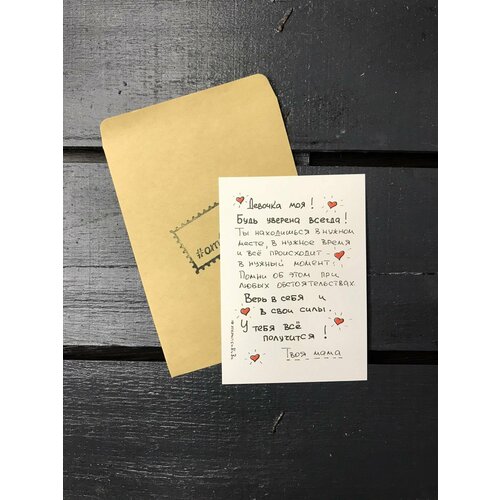 Девочка моя!
Будь уверена всегда!
Ты находишься в нужном
месте, в нужное время
и всё происходит
в нужный момент.
Помни об этом при
любых обстоятельствах.
Верь в себя и
в свои силы.
У тебя всё
получится!
Твоя мама